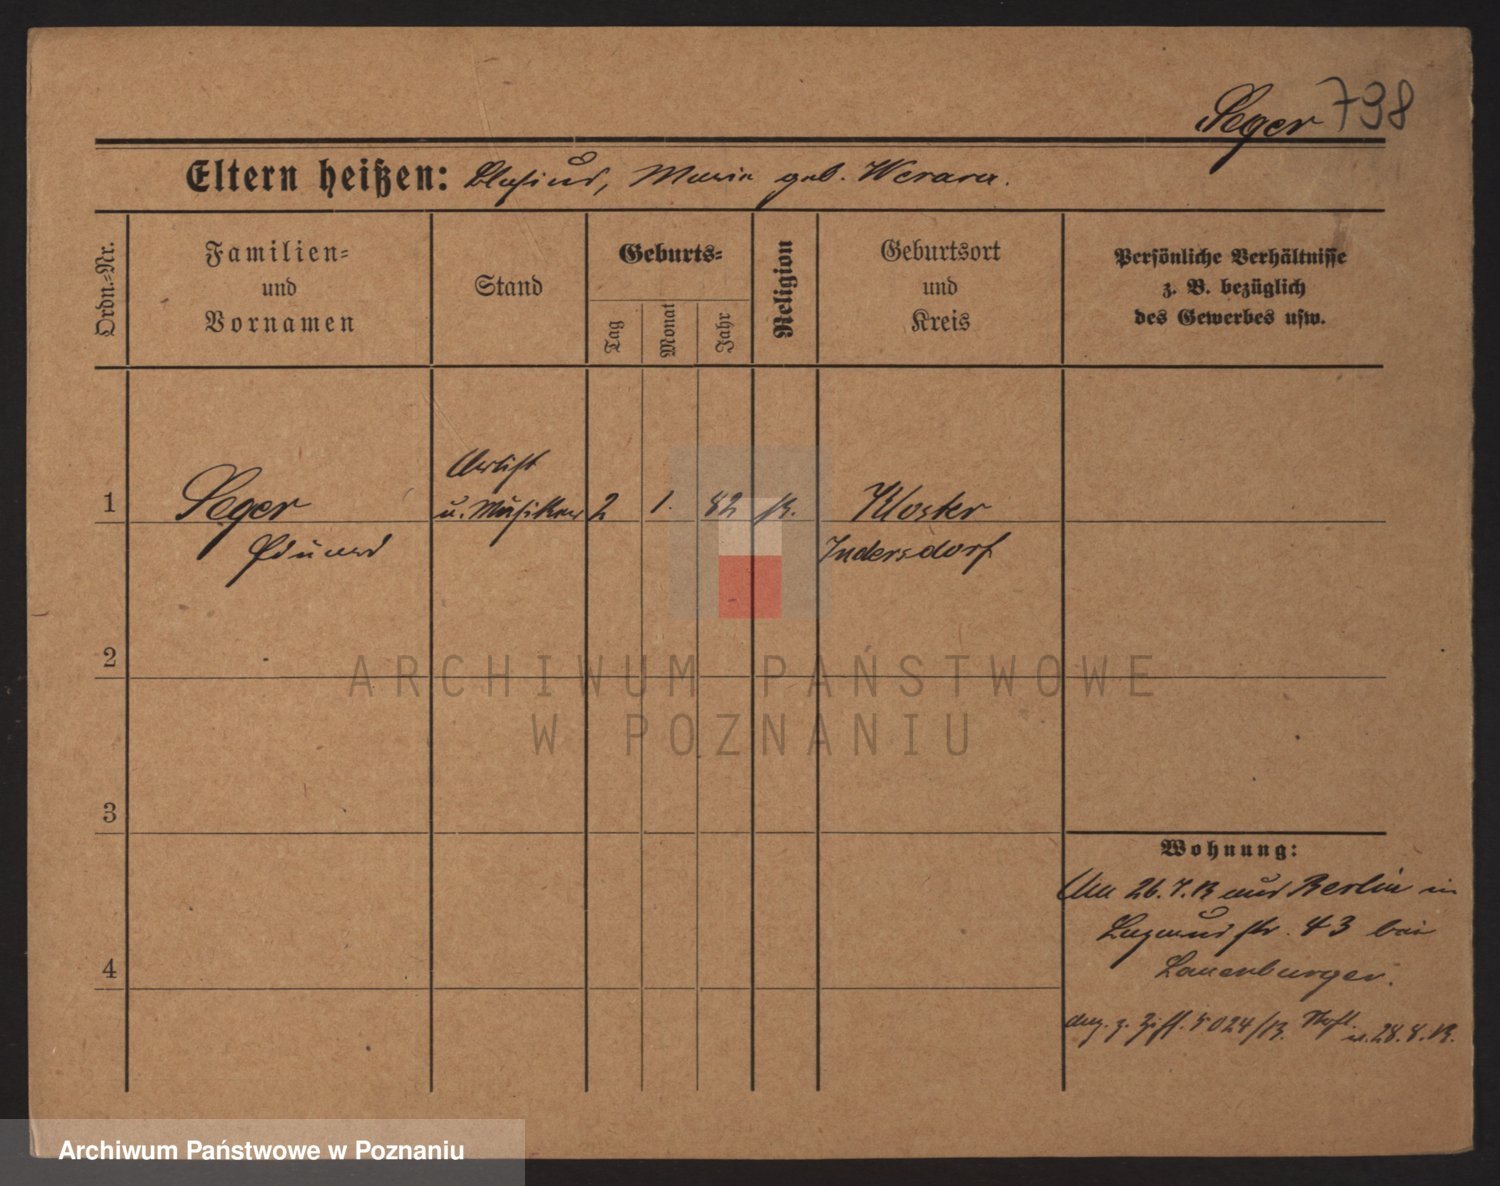 Seger 798
Eltern heißen: Blasius, Maria geb. Werara.
Ordn.-Nr.
Familien=
und
Vornamen
Stand
Geburts=
Tag
Monat
Jahr
Religion
Geburtsort
und
Kreis
Persönliche Verhältnisse
z. B. bezüglich
des Gewerbes usw.
Artist
1 Seger u. Musiker 2 1. 82 k. Kloster
Eduard Indersdorf
2
3
4
Wohnung:
Am 26.7.13 aus Berlin in
str. 43 bei
Lauenburger.
z. Ziff. 5024/13. 28.8.13.
ARCHIWUM PAŃSTWOWE
W POZNANIU
Archiwum Państwowe w Poznaniu